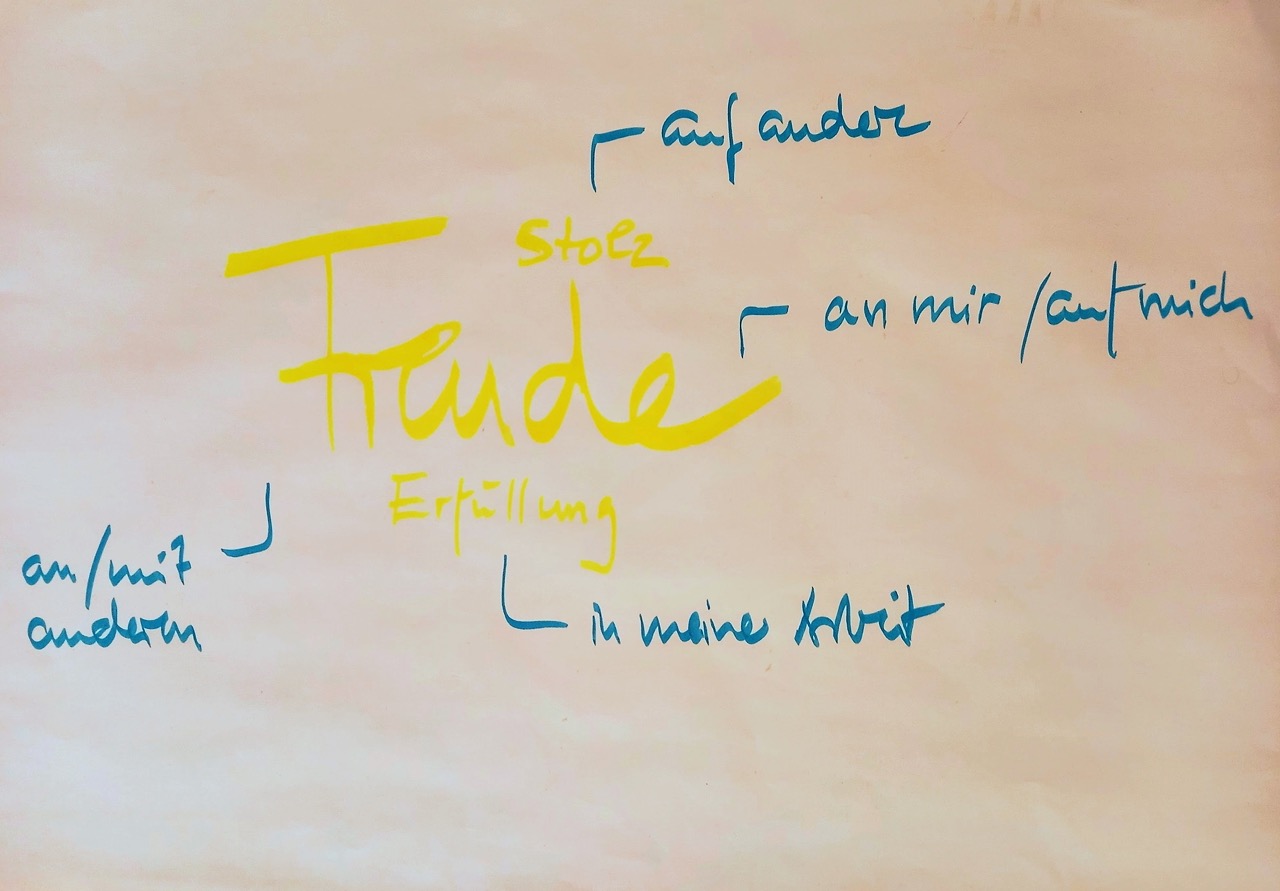 auf ander
Stolz
an mir / auf mich
Freude
Erfüllung
an/mit
anderen
in meine Arbeit